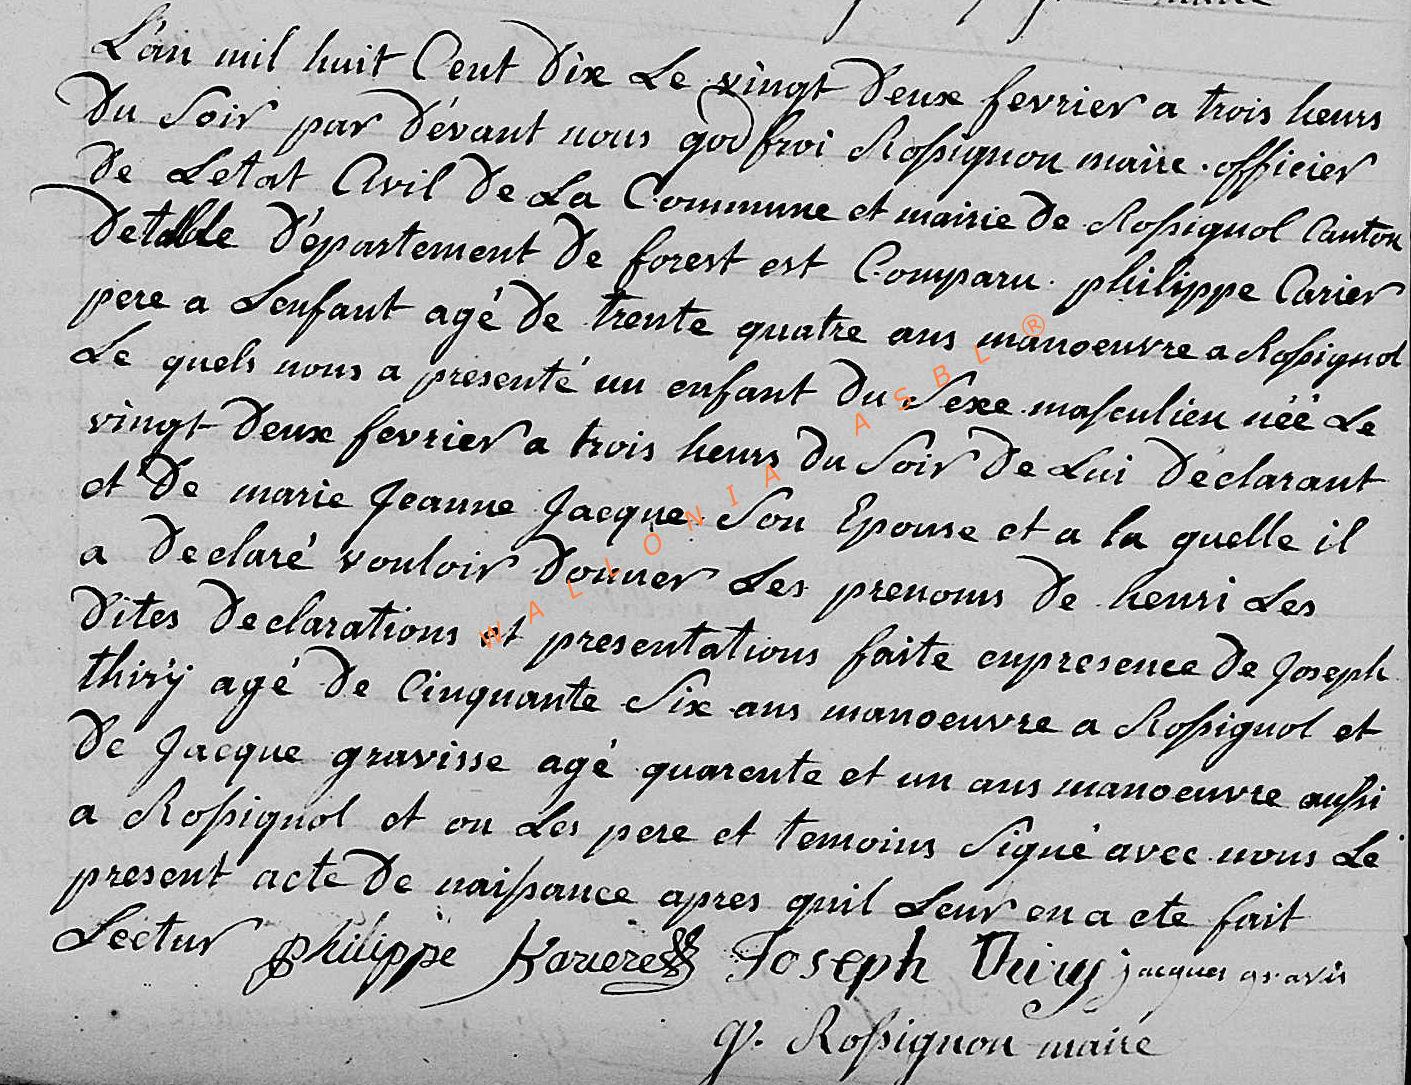 L'an mil huit Cent Dix Le vingt Deux fevrier a trois heurs
Du Soir par D'évant nous godfroi Rossignon maire officier
De Letat Civil De La Commune et mairie De Rossignol Canton
Detalle D'épartement De forest est Comparu philippe Carier
pere a Lenfant agé De trente quatre ans manoeuvre a Rossignol
Le quels nous a presenté un enfant Du Sexe masculien néé Le
vingt Deux fevrier a trois heurs Du Soir De Lui Déclarant
et De marie Jeanne Jacque Son Epouse et a la quelle il
a Declaré vouloir Donner Les prenoms De henri Les
Dites Declarations et presentations faite enpresence De Joseph
thirÿ agé De Cinquante Six ans manoeuvre a Rossignol et
De Jacque gravisse agé quarente et un ans manoeuvre aussi
a Rossignol et on Les pere et temoins Signé avec nous Le
present acte De naissance apres quil Leur en a ete fait
Lectur philippe Karier Joseph Thiry jacques gravis
g. Rossignon maire
WALLONIA ASBL ®